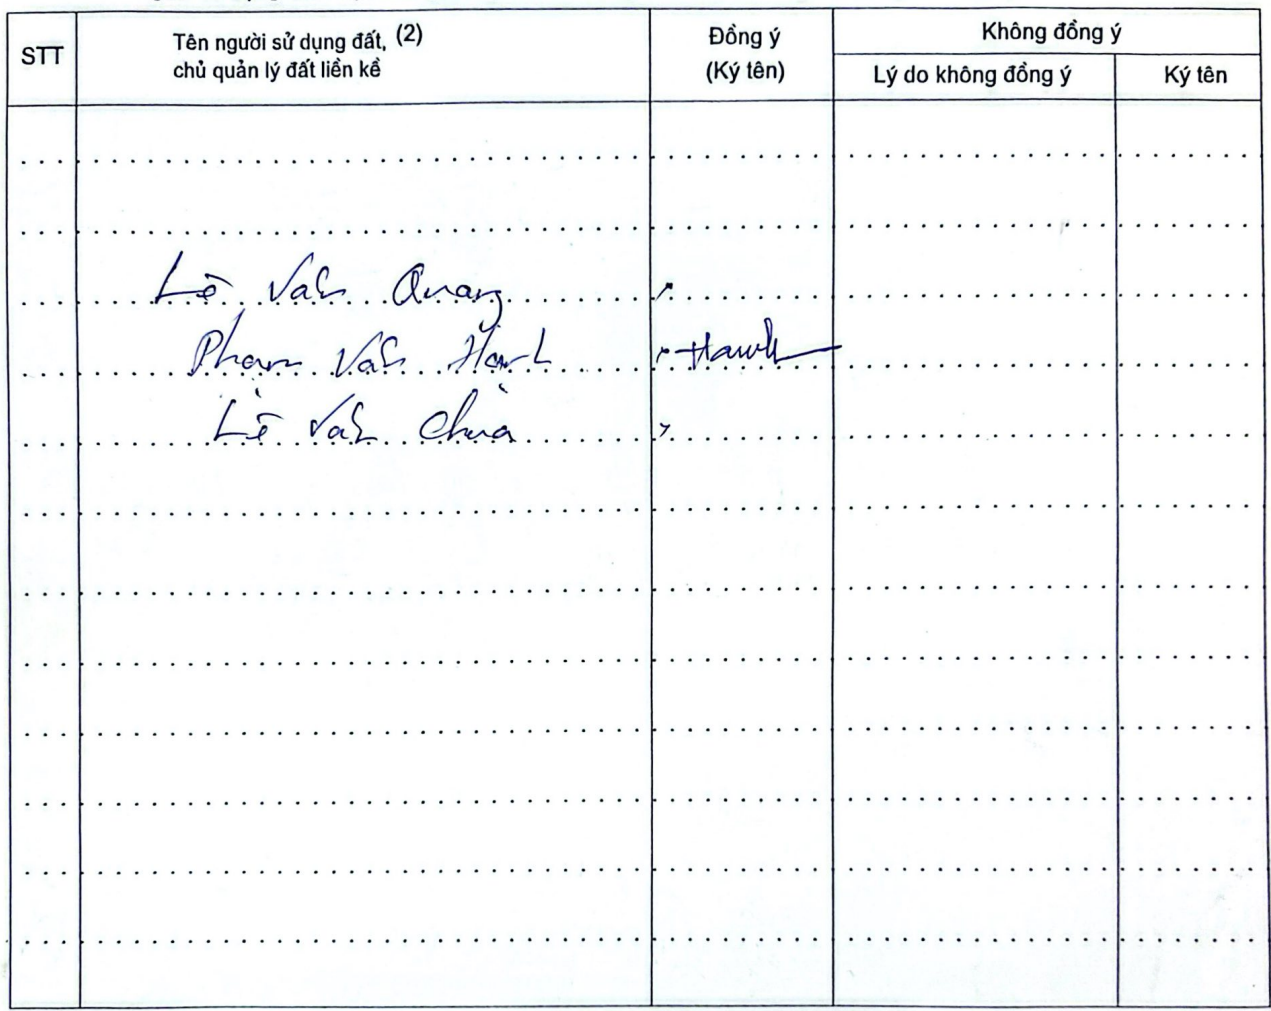 STT
Tên người sử dụng đất, (2)
chủ quản lý đất liền kề
Đồng ý
(Ký tên)
Không đồng ý
Lý do không đồng ý
Ký tên
Lê Văn Quang
Phạm Văn Hạnh Hạnh
Lê Văn